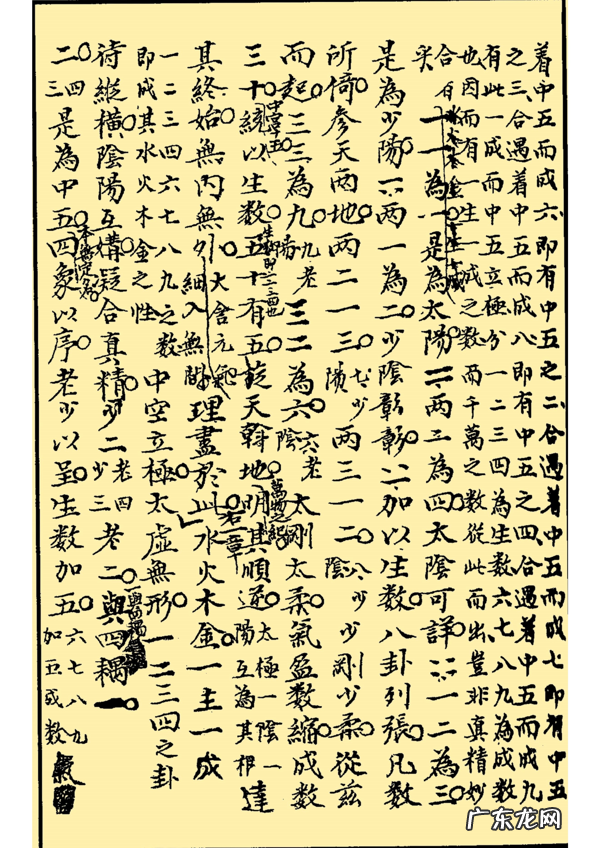 着中五而成六即有中五之二合遇着中五而成七即有中五
之三合遇着中五而成八即有中五之四合遇着中五而成九
有此一成而中五立極分一二三四為生數六七八九為成數
也因而有一生一成之數而千萬之數從此而出豈非真精妙
合
一一為一是為太陽二兩二為四太陰可詳一二為三
是為少陽兩一為二少陰彰彰加以生數八卦列張凡數
所倚參天兩地兩二一三少陽兩三一二少陰少剛少柔從茲
而起三三為九老陽三二為六老陰太剛太柔氣盈數縮成數
三十統以生數五十有五旋天斡地明其順逆太極一陰一陽互為其根達
其終始無內無外大含元氣細入無間理盡於此右一章水火木金一主一成
一二三四六七八九之數即成其水火木金之性中空立極太虛無形一二三四之卦
待縱橫陰陽互媾凝合真精少二老四少三老二與四耦一
二四三是為中五四象以序老少以呈生數加五六七八九加五或數
广东龙网